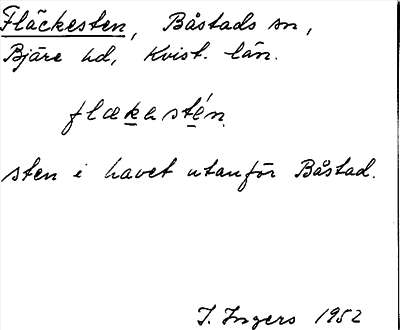 Fläckesten, Båstads sn,
Bjäre hd, Krist. län.
flækastén.
sten i havet utanför Båstad.
I. Ingers 1952